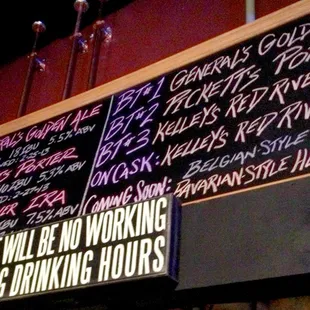 GENERAL'S GOLDEN ALE
IBU 5.5% ABV
2-28-13
PORTER
IBU 5.3% ABV
2-27-13
IRA
IBU 7.5% ABV
BT#1 GENERAL'S GOLD
BT#2 PICKETT'S PO
BT#3 KELLEY'S RED RIVER
ON CASK: KELLEY'S RED RIV
COMING SOON: BELGIAN-STYLE
BAVARIAN-STYLE HE
WILL BE NO WORKING
DRINKING HOURS